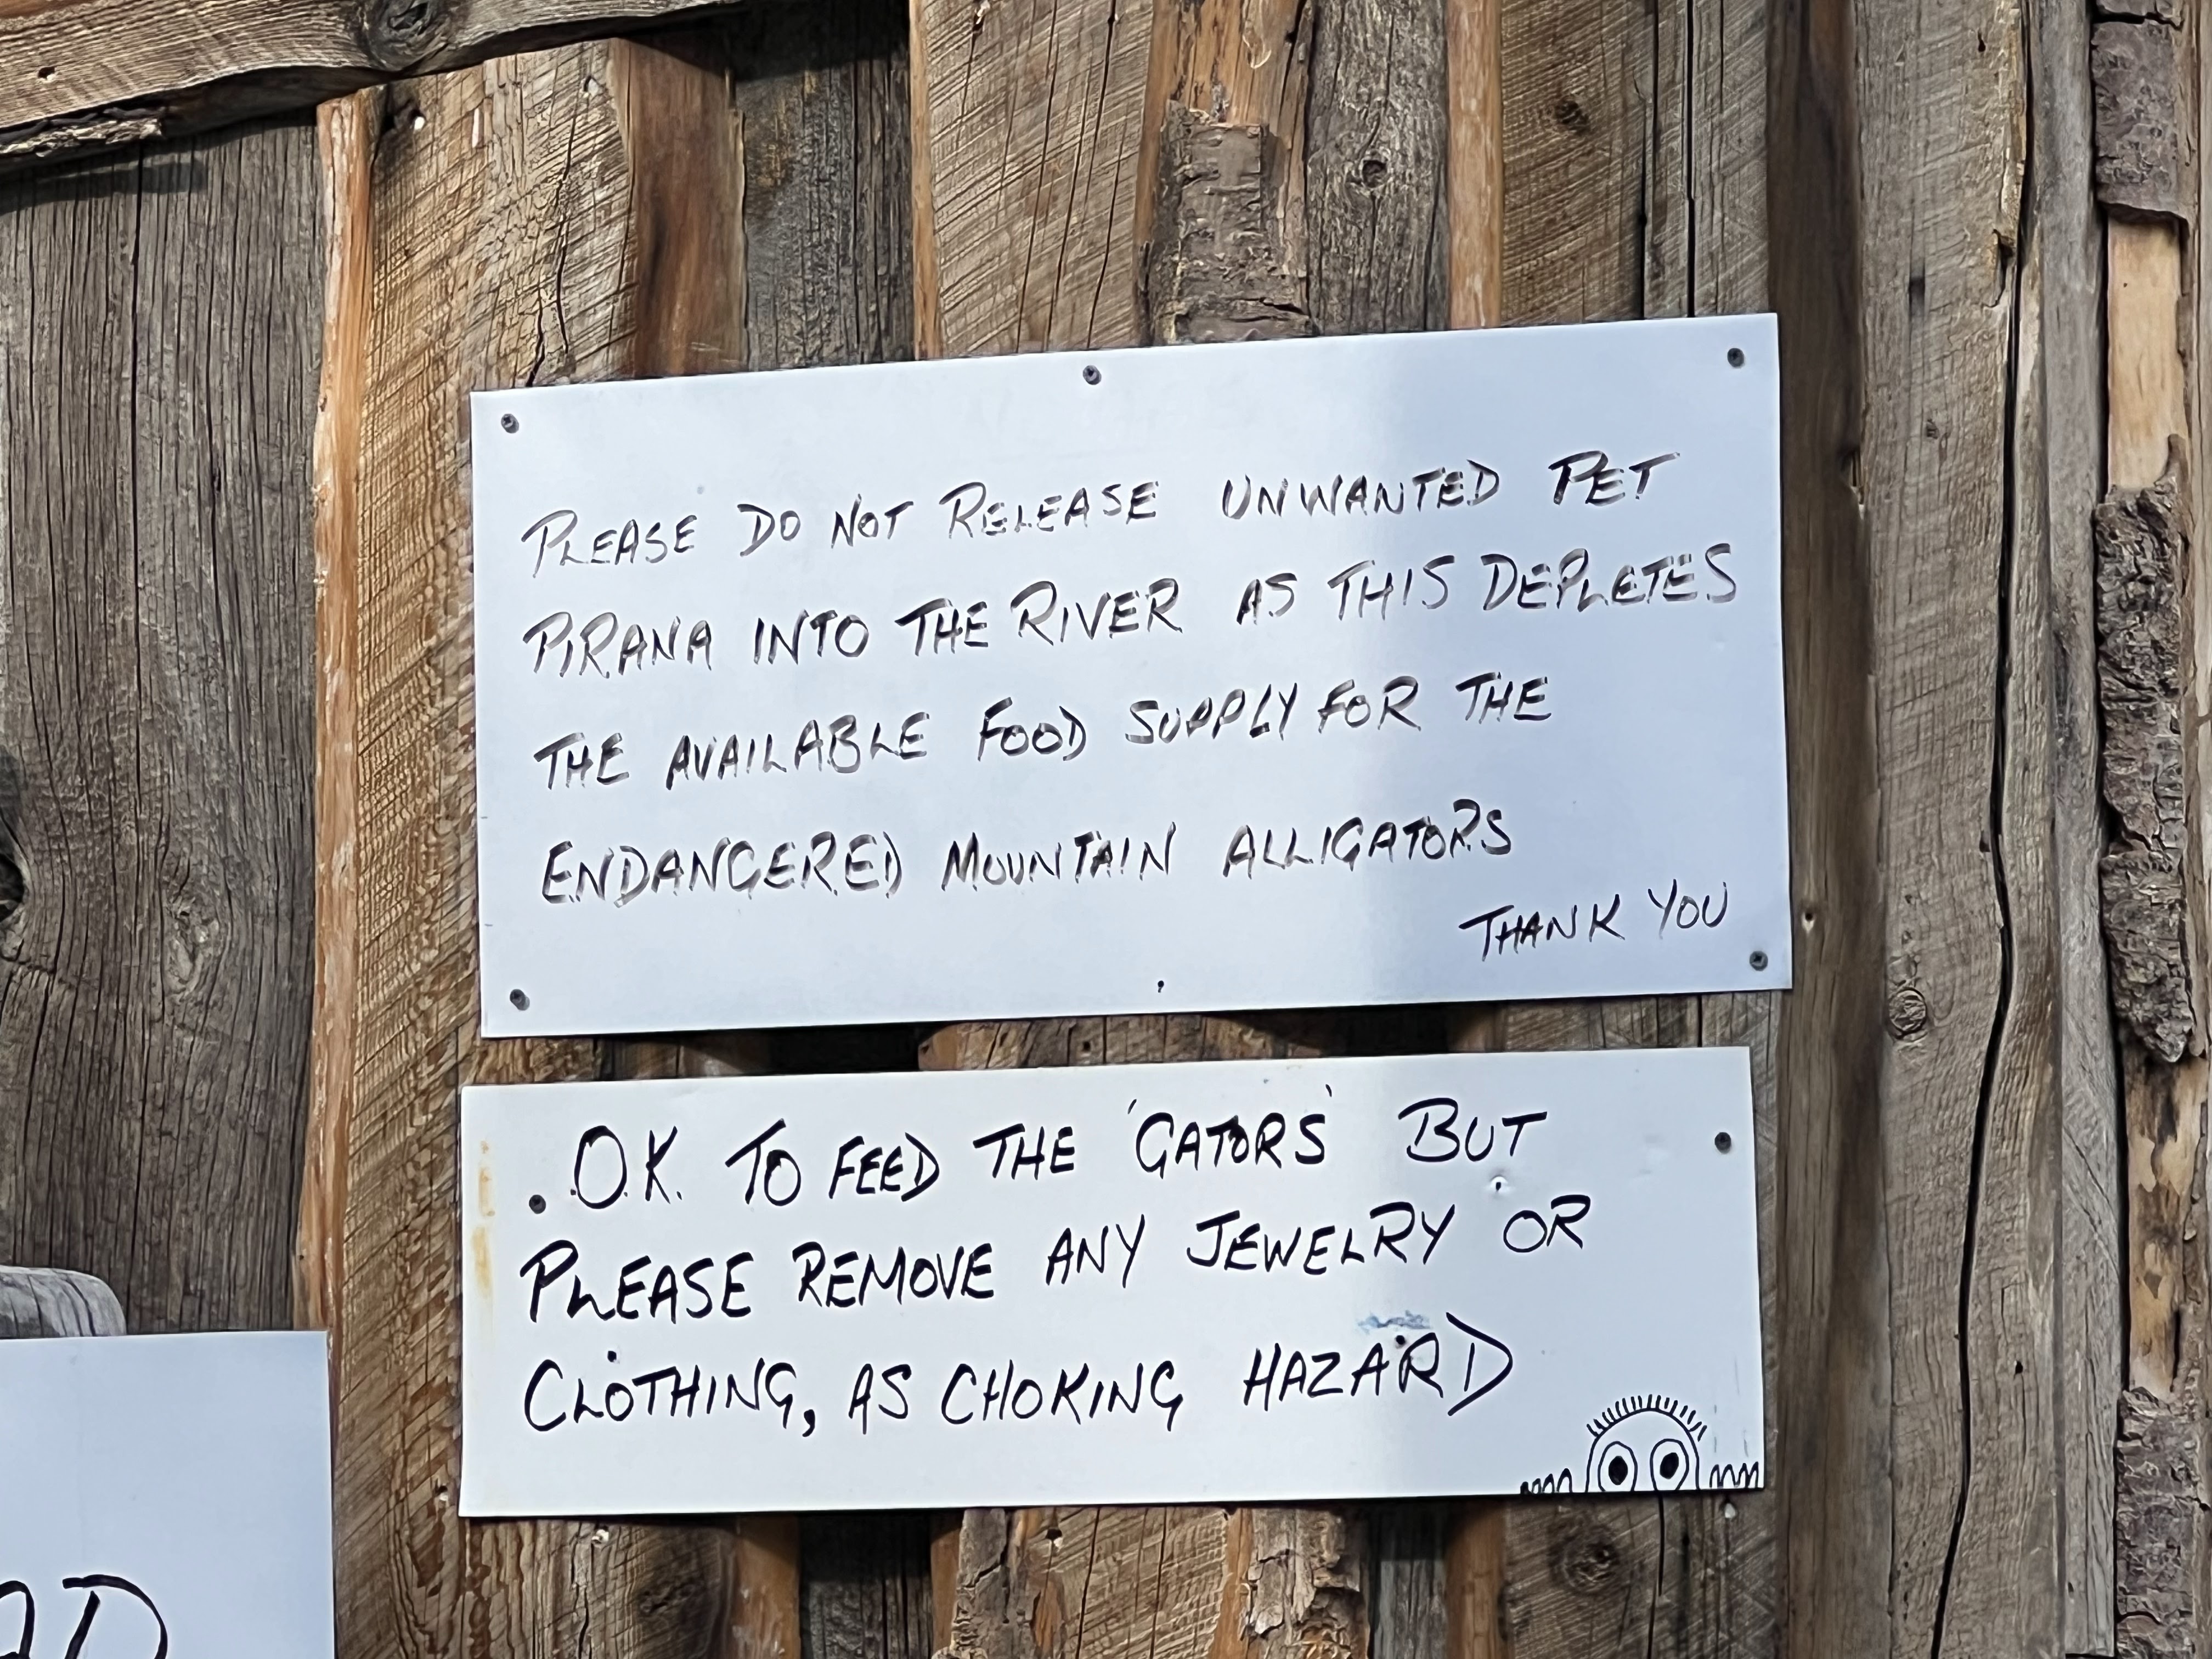 PLEASE DO NOT RELEASE UNWANTED PET
PIRANA INTO THE RIVER AS THIS DEPLETES
THE AVAILABLE FOOD SUPPLY FOR THE
ENDANGERED MOUNTAIN ALLIGATORS
THANK YOU
O.K. TO FEED THE 'GATORS' BUT
PLEASE REMOVE ANY JEWELRY OR
CLOTHING, AS CHOKING HAZARD